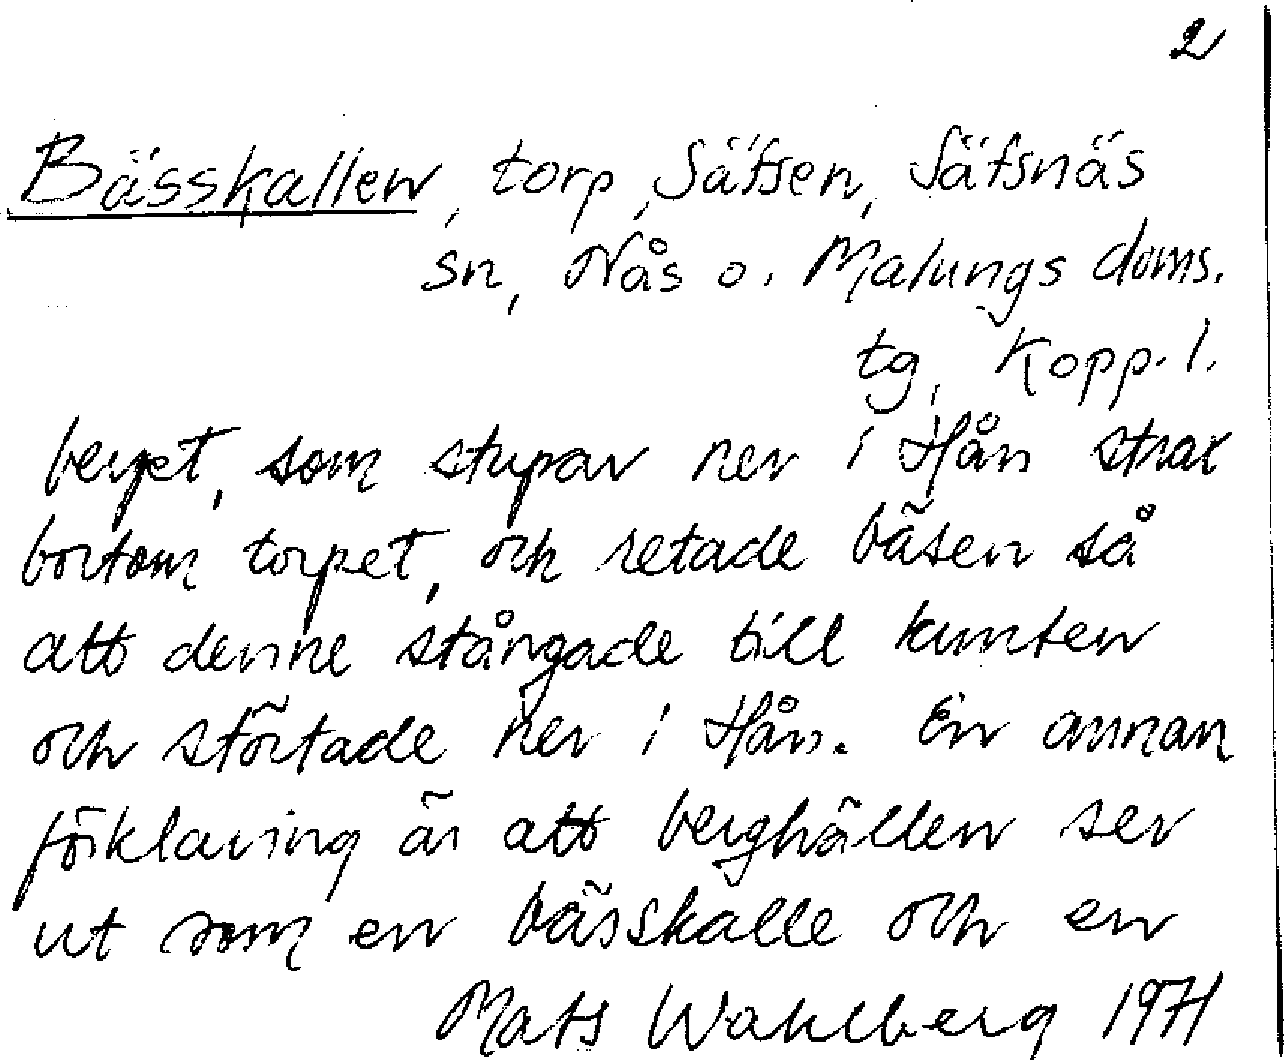 2
Bässkallen, torp, Säfsen, Säfsnäs
sn, Nås o. Malungs doms.
tg, Kopp. l.
berget, som stupar ner i Hån strax
bortom torpet, och retade bäsen så
att denne stångade till kunsen
och störtade ner i Hån. En annan
förklaring är att berghällen ser
ut som en bässkalle och en
Mats Wahlberg 1971